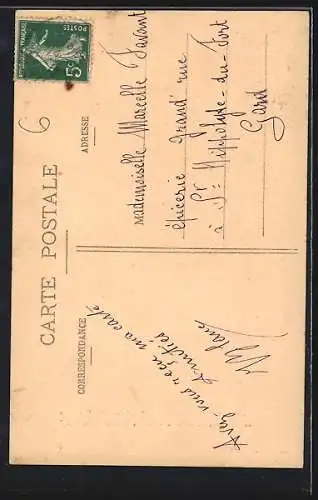 CARTE POSTALE
CORRESPONDANCE
ADRESSE
5c
6
Mademoiselle Marcelle Favant
épicerie Grand' rue
à St Hippolyte-du-Fort
Gard
Avez-vous reçu ma carte
Amitiés